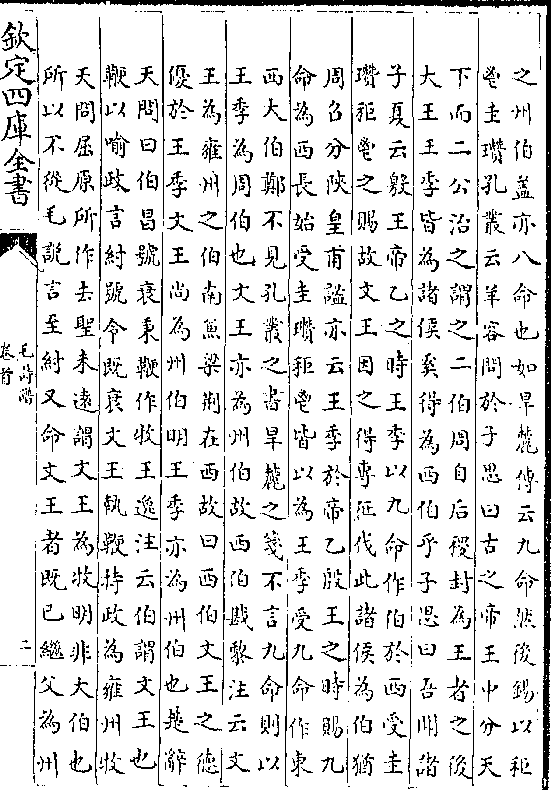 之州伯蓋亦八命也如旱麓傳云九命然後錫以秬
鬯圭瓚孔叢云羊容問於子思曰古之帝王中分天
下而二公治之謂之二伯周自后稷封為王者之後
大王王季皆為諸侯奚得為西伯乎子思曰吾聞諸
子夏云殷王帝乙之時王季以九命作伯於西受圭
瓚秬鬯之賜故文王因之得專征伐此諸侯為伯猶
周召分陜皇甫謐亦云王季於帝乙殷王之時賜九
命為西長始受圭瓚秬鬯皆以為王季受九命作東
西大伯鄭不見孔叢之書旱麓之箋不言九命則以
王季為周伯也文王亦為州伯故西伯戡黎注云文
王為雍州之伯南兼梁荆在西故曰西伯文王之德
優於王季文王尚為州伯明王季亦為州伯也楚辭
天問曰伯昌號衰秉鞭作牧王逸注云伯謂文王也
鞭以喻政言紂號令既衰文王執鞭持政為雍州牧
天問屈原所作去聖未遠謂文王為牧明非大伯也
所以不從毛說言至紂又命文王者既已繼父為州
欽定四庫全書
毛詩譜
卷首
二